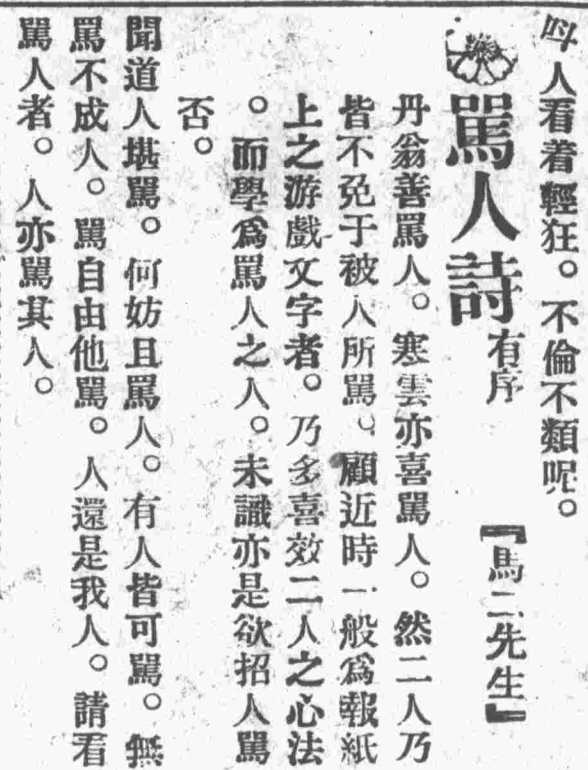 叫人看着輕狂。不倫不類呢。
罵人詩 有序 『馬二先生』
丹翁善罵人。寒雲亦喜罵人。然二人乃
皆不免于被人所罵。顧近時一般爲報紙
上之游戲文字者。乃多喜效二人之心法
。而學爲罵人之人。未識亦是欲招人罵
否。
聞道人堪罵。何妨且罵人。有人皆可罵。無
罵不成人。罵自由他罵。人還是我人。請看
罵人者。人亦罵其人。